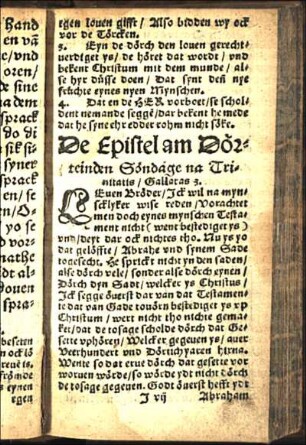 hand
en vā
e/vnd
oren/
de sine
na dem
sprack
do di
sik si-
synes
sprack
en/se
n/G-
yo se
d vor-
nathe
dt al-
louen
spra-
beseten
n ock jō
reue is,
frömde
eynen
egen
egen louen gifft / Also bidden wy ock
vor de Törcken.
3. Eyn de dörch den louen gerecht-
uerdiget ys / de höret dat wordt / vnd
bekent Christum mit dem munde / al-
se hyr düsse doen / Dat synt deñ nye
früchte eynes nyen Mynschen.
4. Dat en de HER vorboet / se schol-
dent nemande seggē / dar bekent he mede
dat he syne ehr edder rohm nicht söke.
De Epistel am Dör-
teinden Söndage na Tri-
nitatis / Gallatas 3.
LEuen Bröder / Ick wil na myn-
sckl​yker wise reden / Vorachtet
men doch eynes mynschen Testa-
ment nicht (went bestediget ys)
vnd / deyt dar ock nichtes tho. Nu ys yo
dat gelöffte / Abrahē vnd synem Sade
togesecht. He sprickt nicht yn den saden /
alse dörch vele / sonder alse dörch eynen /
Dörch dyn Sadt / welcker ys Christus /
Ick segge öuerst dar van dat Testamen-
te dat van Gade touörn bestediget ys yp
Christum / wert nicht tho nichte gema-
ket / dat de tosage scholde dörch dat Ge-
sette vphören / Welcker gegeuen ys / auer
Veerhundert vnd Dörtich yaren hirna.
Wente so dat erue dörch dat gesette vor-
woruen würde / so würde ydt nicht dörch
de tosage gegeuen. Godt öuerst hefft ydt
J vij Abraham